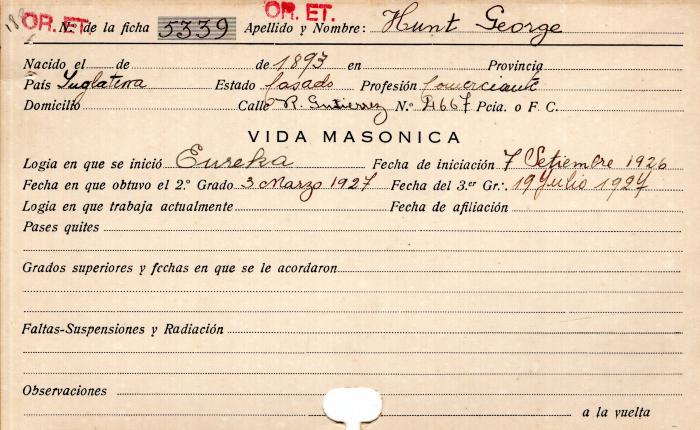 OR. ET. OR. ET.
N.º de la ficha 5339 Apellido y Nombre: Hunt George
Nacido el de de 1893 en Provincia
País Inglaterra Estado Casado Profesión Comerciante
Domicilio Calle R. Gutierrez N.º 4667 Pcia. o F. C.
VIDA MASONICA
Logia en que se inició Eureka Fecha de iniciación 7 Setiembre 1926
Fecha en que obtuvo el 2.º Grado 3 Marzo 1927 Fecha del 3.er Gr.·. 19 Julio 1927
Logia en que trabaja actualmente Fecha de afiliación
Pases quites
Grados superiores y fechas en que se le acordaron
Faltas-Suspensiones y Radiación
Observaciones
a la vuelta